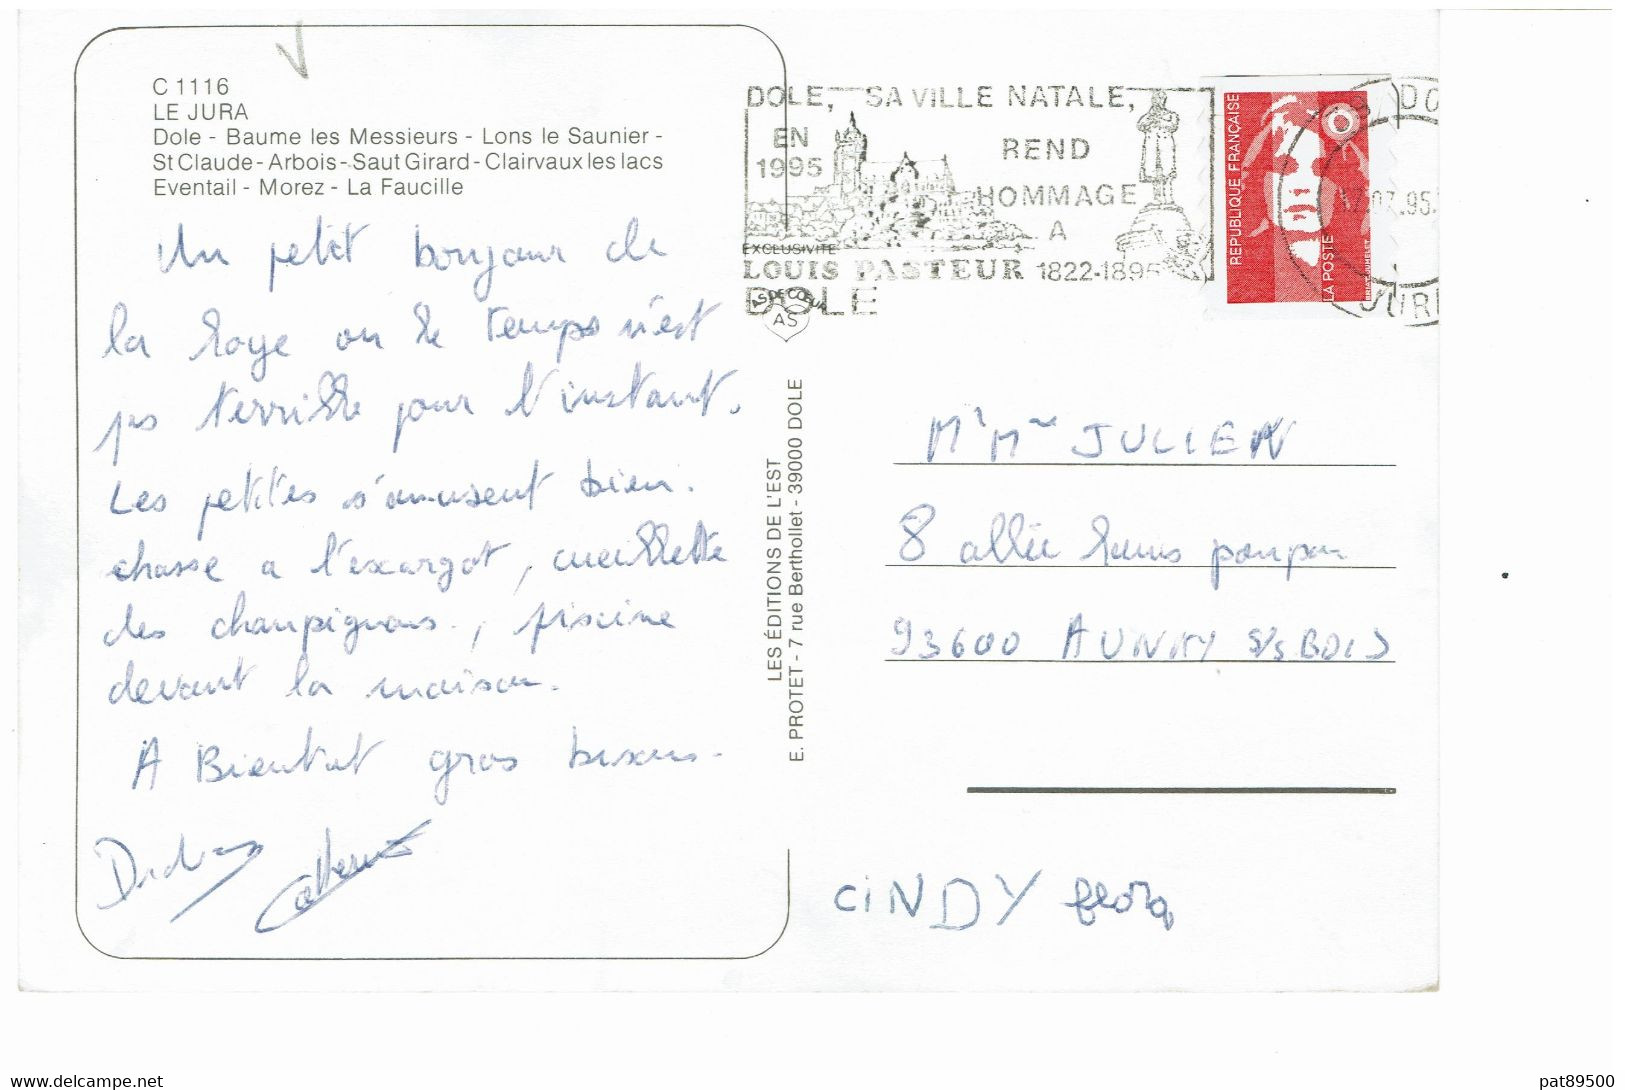 C 1116
LE JURA
Dole - Baume les Messieurs - Lons le Saunier -
St Claude - Arbois - Saut Girard - Clairvaux les lacs
Eventail - Morez - La Faucille
Un petit bonjour de
la Roye ou le temps n'est
ps terrible pour l'instant.
Les petites s'amusent bien.
chasse a l'escargot, cueillette
des champignons, piscine
devant la maison.
A Bientot gros bisous.
Catherine
DOLE, SA VILLE NATALE,
EN 1995 REND
HOMMAGE
A
LOUIS PASTEUR 1822-1895
DOLE
EXCLUSIVITÉ
AS DE CŒUR
AS
REPUBLIQUE FRANÇAISE
LA POSTE
.07.95
JUR
LES ÉDITIONS DE L'EST
E. PROTET - 7 rue Berthollet - 39000 DOLE
Mr Mme JULIEN
8 allée
93600 AUNAY S/S BOIS
CiNDY flora
pat89500